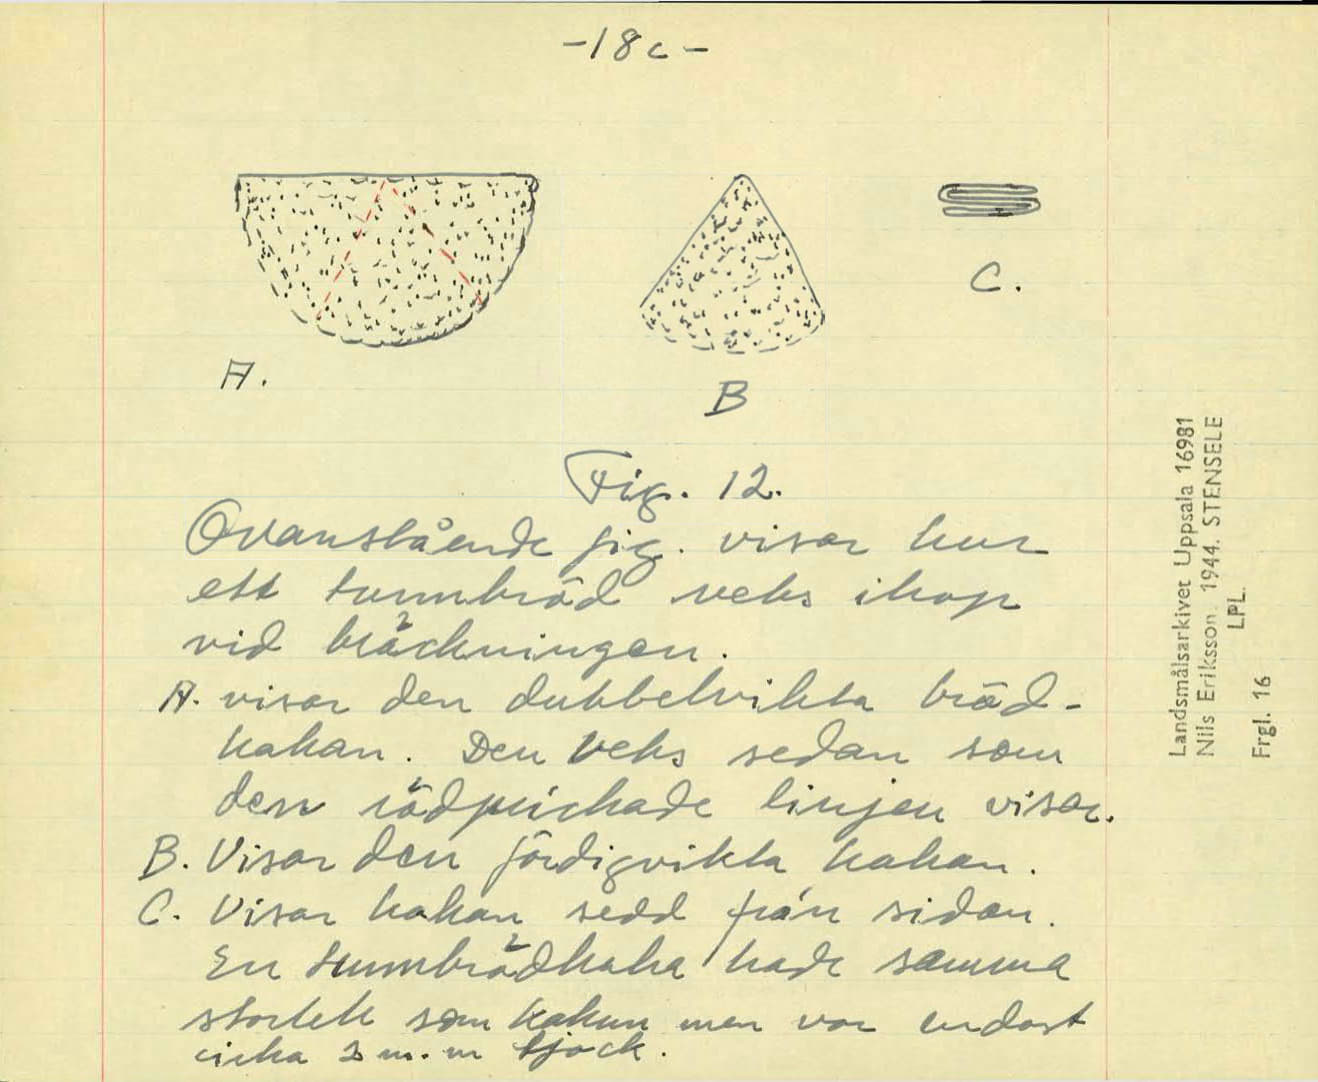 -18c-
A.
B
C.
Fig. 12.
Ovanstående fig. visar hur
ett tunnbröd veks ihop
vid bräckningen.
A. visar den dubbelvikta bröd-
kakan. Den veks sedan som
den rödprickade linjen visar.
B. Visar den färdigvikta kakan.
C. Visar kakan sedd från sidan.
En tunnbrödkaka hade samma
storlek som kakun men var endast
cirka 2 m.m tjock.
Landsmålsarkivet Uppsala 16981
Nils Eriksson. 1944. STENSELE
LPL.
Frgl. 16